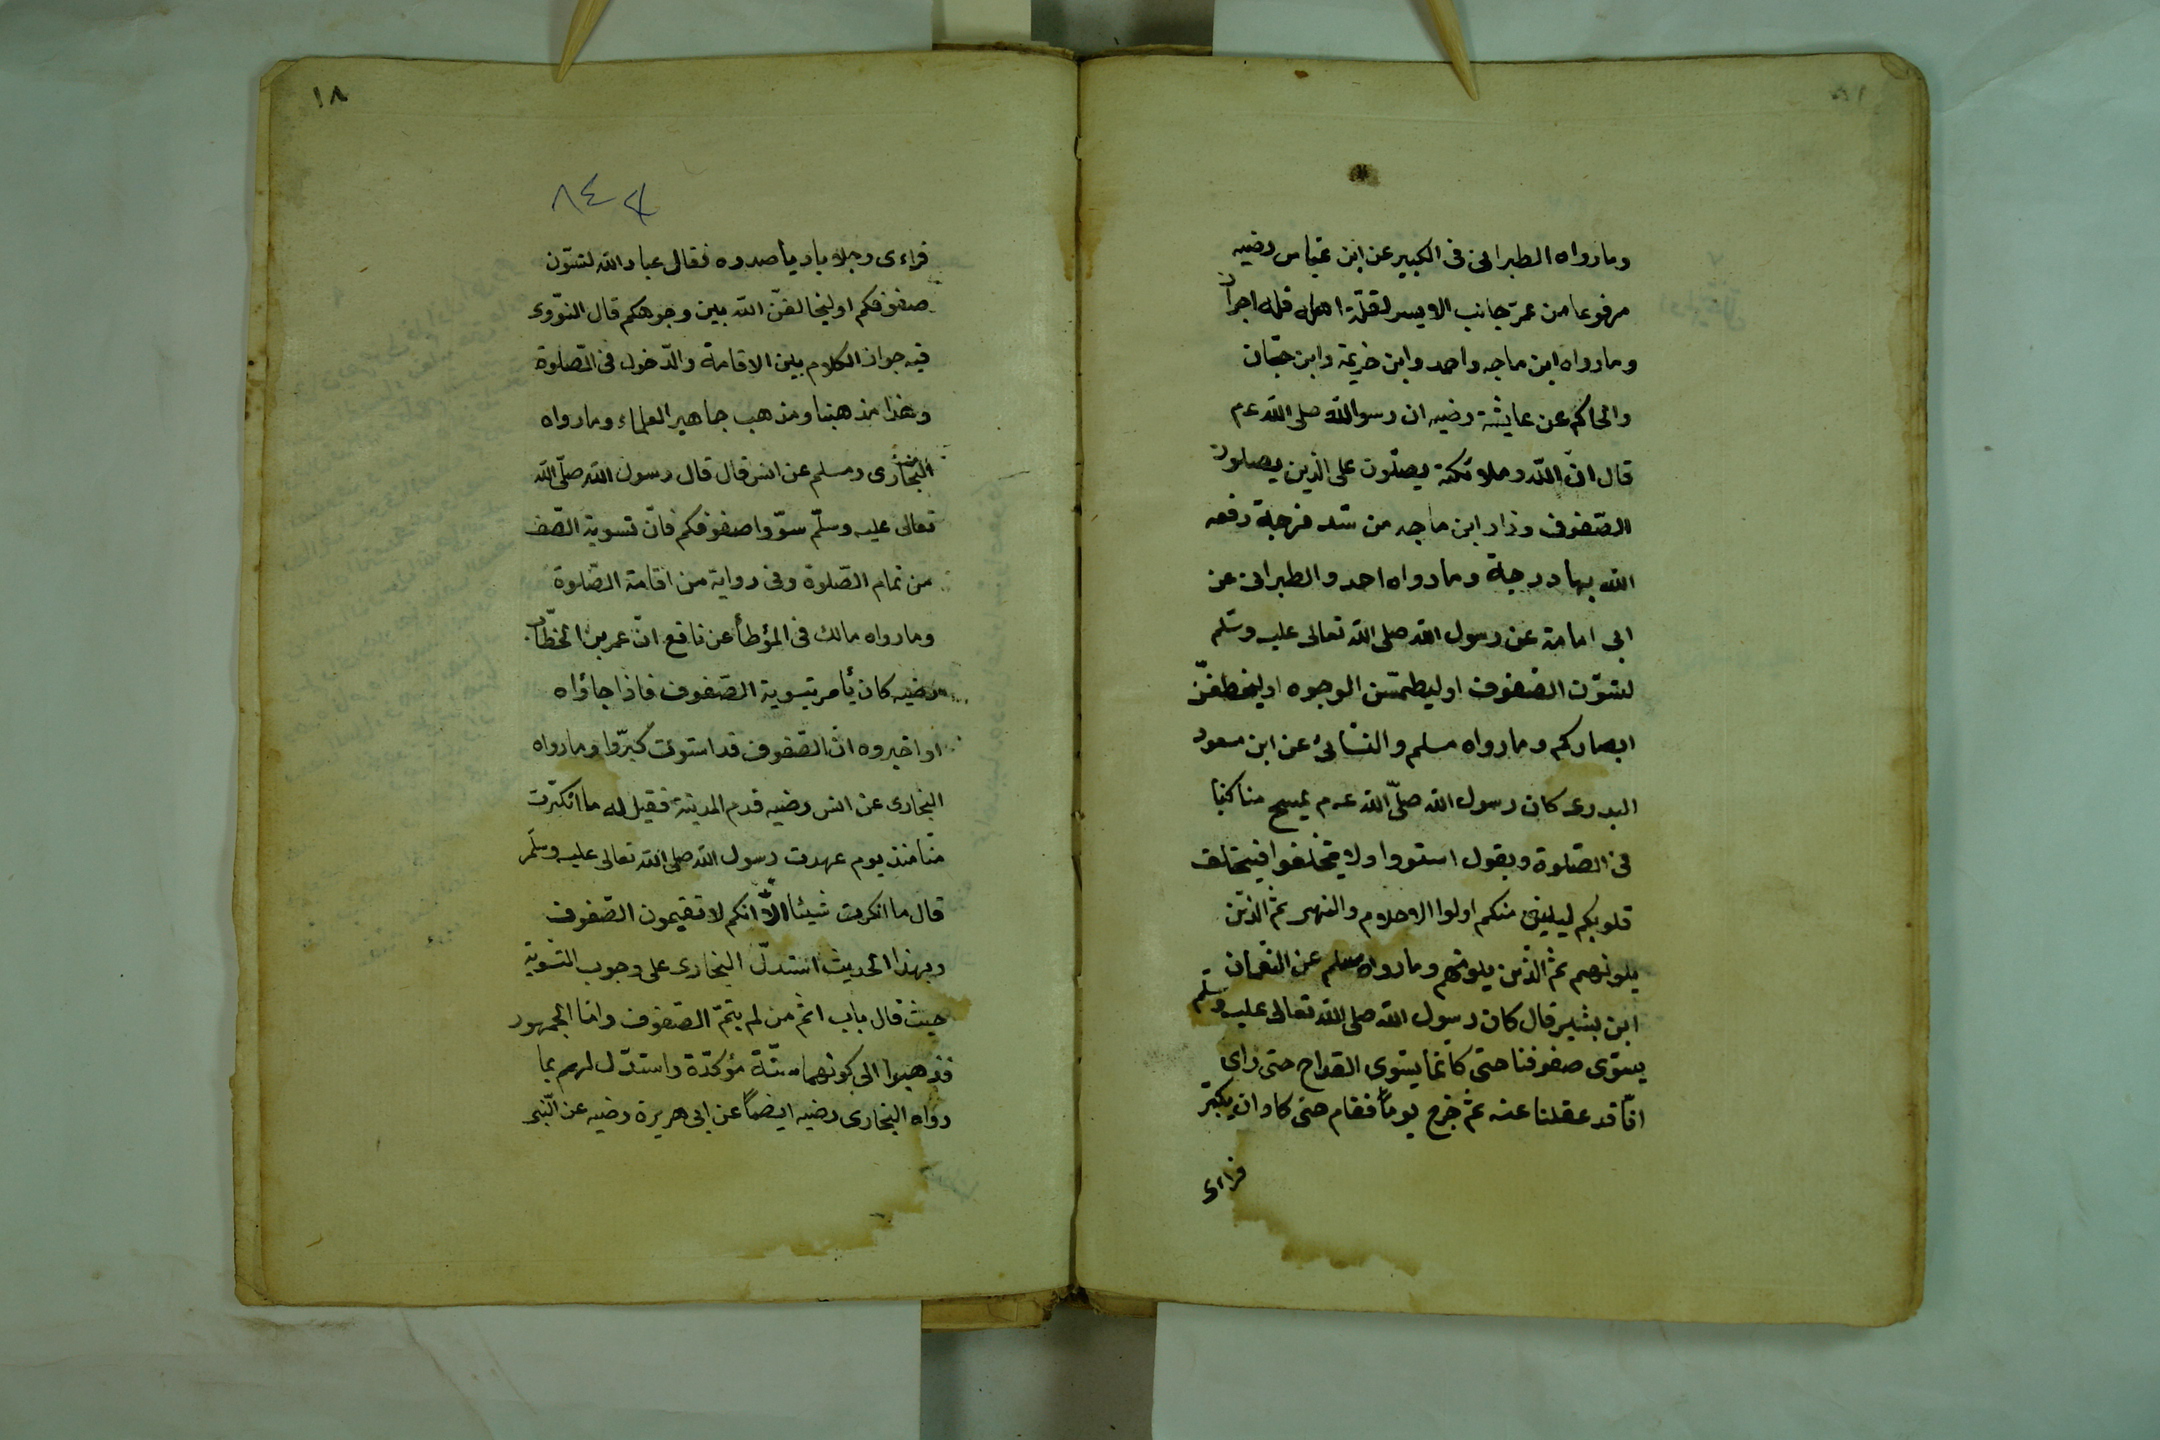 وما رواه الطبرانى فى الكبير عن ابن عباس رضيه
مرفوعا من عمّر جانب الايسر لقلّة اهله فله اجران
وما رواه ابن ماجه واحمد وابن خزيمة وابن حبّان
والحاكم عن عايشة رضيه ان رسول الله صلى الله عم
قال انّ الله وملائكته يصلّون على الذين يصلون
الصّفوف وزاد ابن ماجه من سّد فرجة رفعه
الله بها درجة وما رواه احمد والطبرانى عن
ابى امامة عن رسول الله صلى الله تعالى عليه وسّلم
لتسوّن الصّفوف او ليطمسّن الوجوه او ليخطفنّ
ابصاركم وما رواه مسلم والنسّائى عن ابن مسعود
البدرى كان رسول الله صلّى الله عم يمسح مناكبنا
فى الصّلوة ويقول استووا ولا تختلفوا فيختلف
قلوبكم ليلينى منكم اولوا الاحلام والنهى ثمّ الذّين
يلونهم ثمّ الذّين يلونهم وما رواه مسلم عن النّعمان
ابن بشير قال كان رسول الله صلى الله تعالى عليه وسّلم
يسوّى صفوفنا حتى كانّما يسّوى القداح حتى راى
انّا قد عقلنا عنه ثمّ خرج يوماً فقام حتى كاد ان يكبّر
فراى
١٨
٨٤
فراى رجلا باديأ صدره فقال عباد الله لتسّون
صفوفكم او ليخالفنّ الله بين وجوهكم قال النّووى
فيه جواز الكلام بين الاقامة والدّخول فى الصّلوة
وهذا مذهبنا ومذهب جماهير العلماء وما رواه
البخارى ومسلم عن انس قال قال رسول الله صلّى الله
تعالى عليه وسلّم سوّوا صفوفكم فانّ تسوية الصّف
من تمام الصّلوة وفى رواية من اقامة الصّلوة
وما رواه مالك فى المؤطأ عن نافع انّ عمر بن الخطّاب
رضيه كان يأمر بتسوية الصّفوف فاذا جاؤاه
او اخبروه انّ الصّفوف قد استوت كبّروا وما رواه
البخارى عن انس رضيه قدم المدينة فقيل له ما انكرت
منّا منذ يوم عهدت رسول الله صلى الله تعالى عليه وسلّم
قال ما انكرت شيئا الّا انكم لا تقيمون الصّفوف
وبهذا الحديث استدلّ البخارى على وجوب التسّوية
حيث قال باب اثم من لم يتمّ الصّفوف وامّا الجمهور
فذهبوا الى كونهما سنّة مؤكدّة واستدّل لهم بما
رواه البخارى رضيه ايضاً عن ابى هريرة رضيه عن النّبى